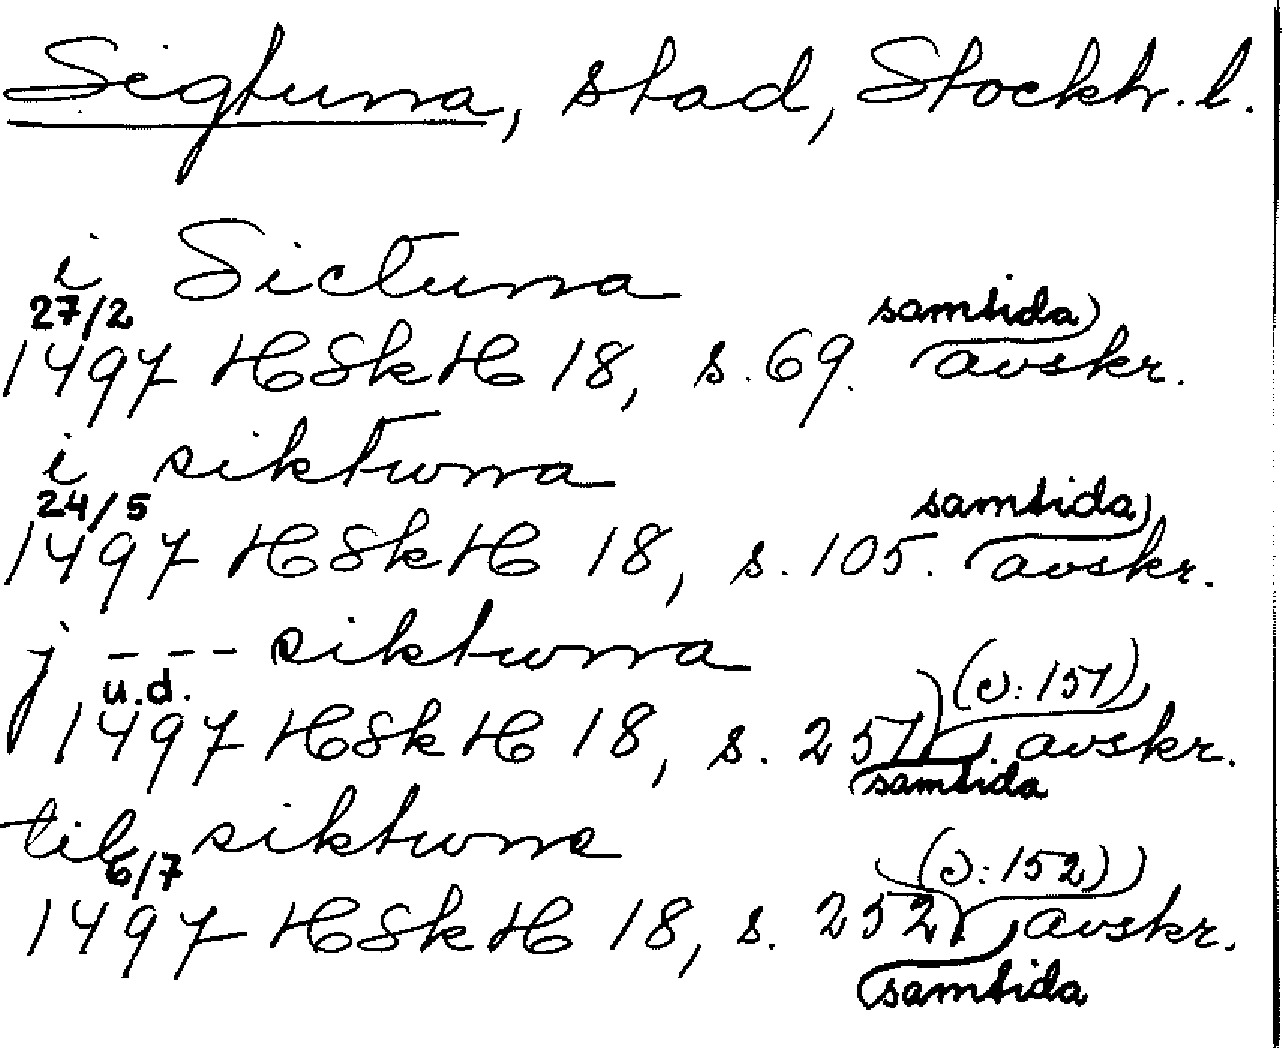 Sigtuna, stad, Stockh. l.
i Sictuna
27/2 samtida
1497 HSkH 18, s. 69. avskr.
i siktwna
24/5 samtida
1497 HSkH 18, s. 105. avskr.
j --- siktwna
u.d. (o: 151)
1497 HSkH 18, s. 251, avskr.
samtida
til siktwne
6/7 (o: 152)
1497 HSkH 18, s. 252, avskr.
samtida